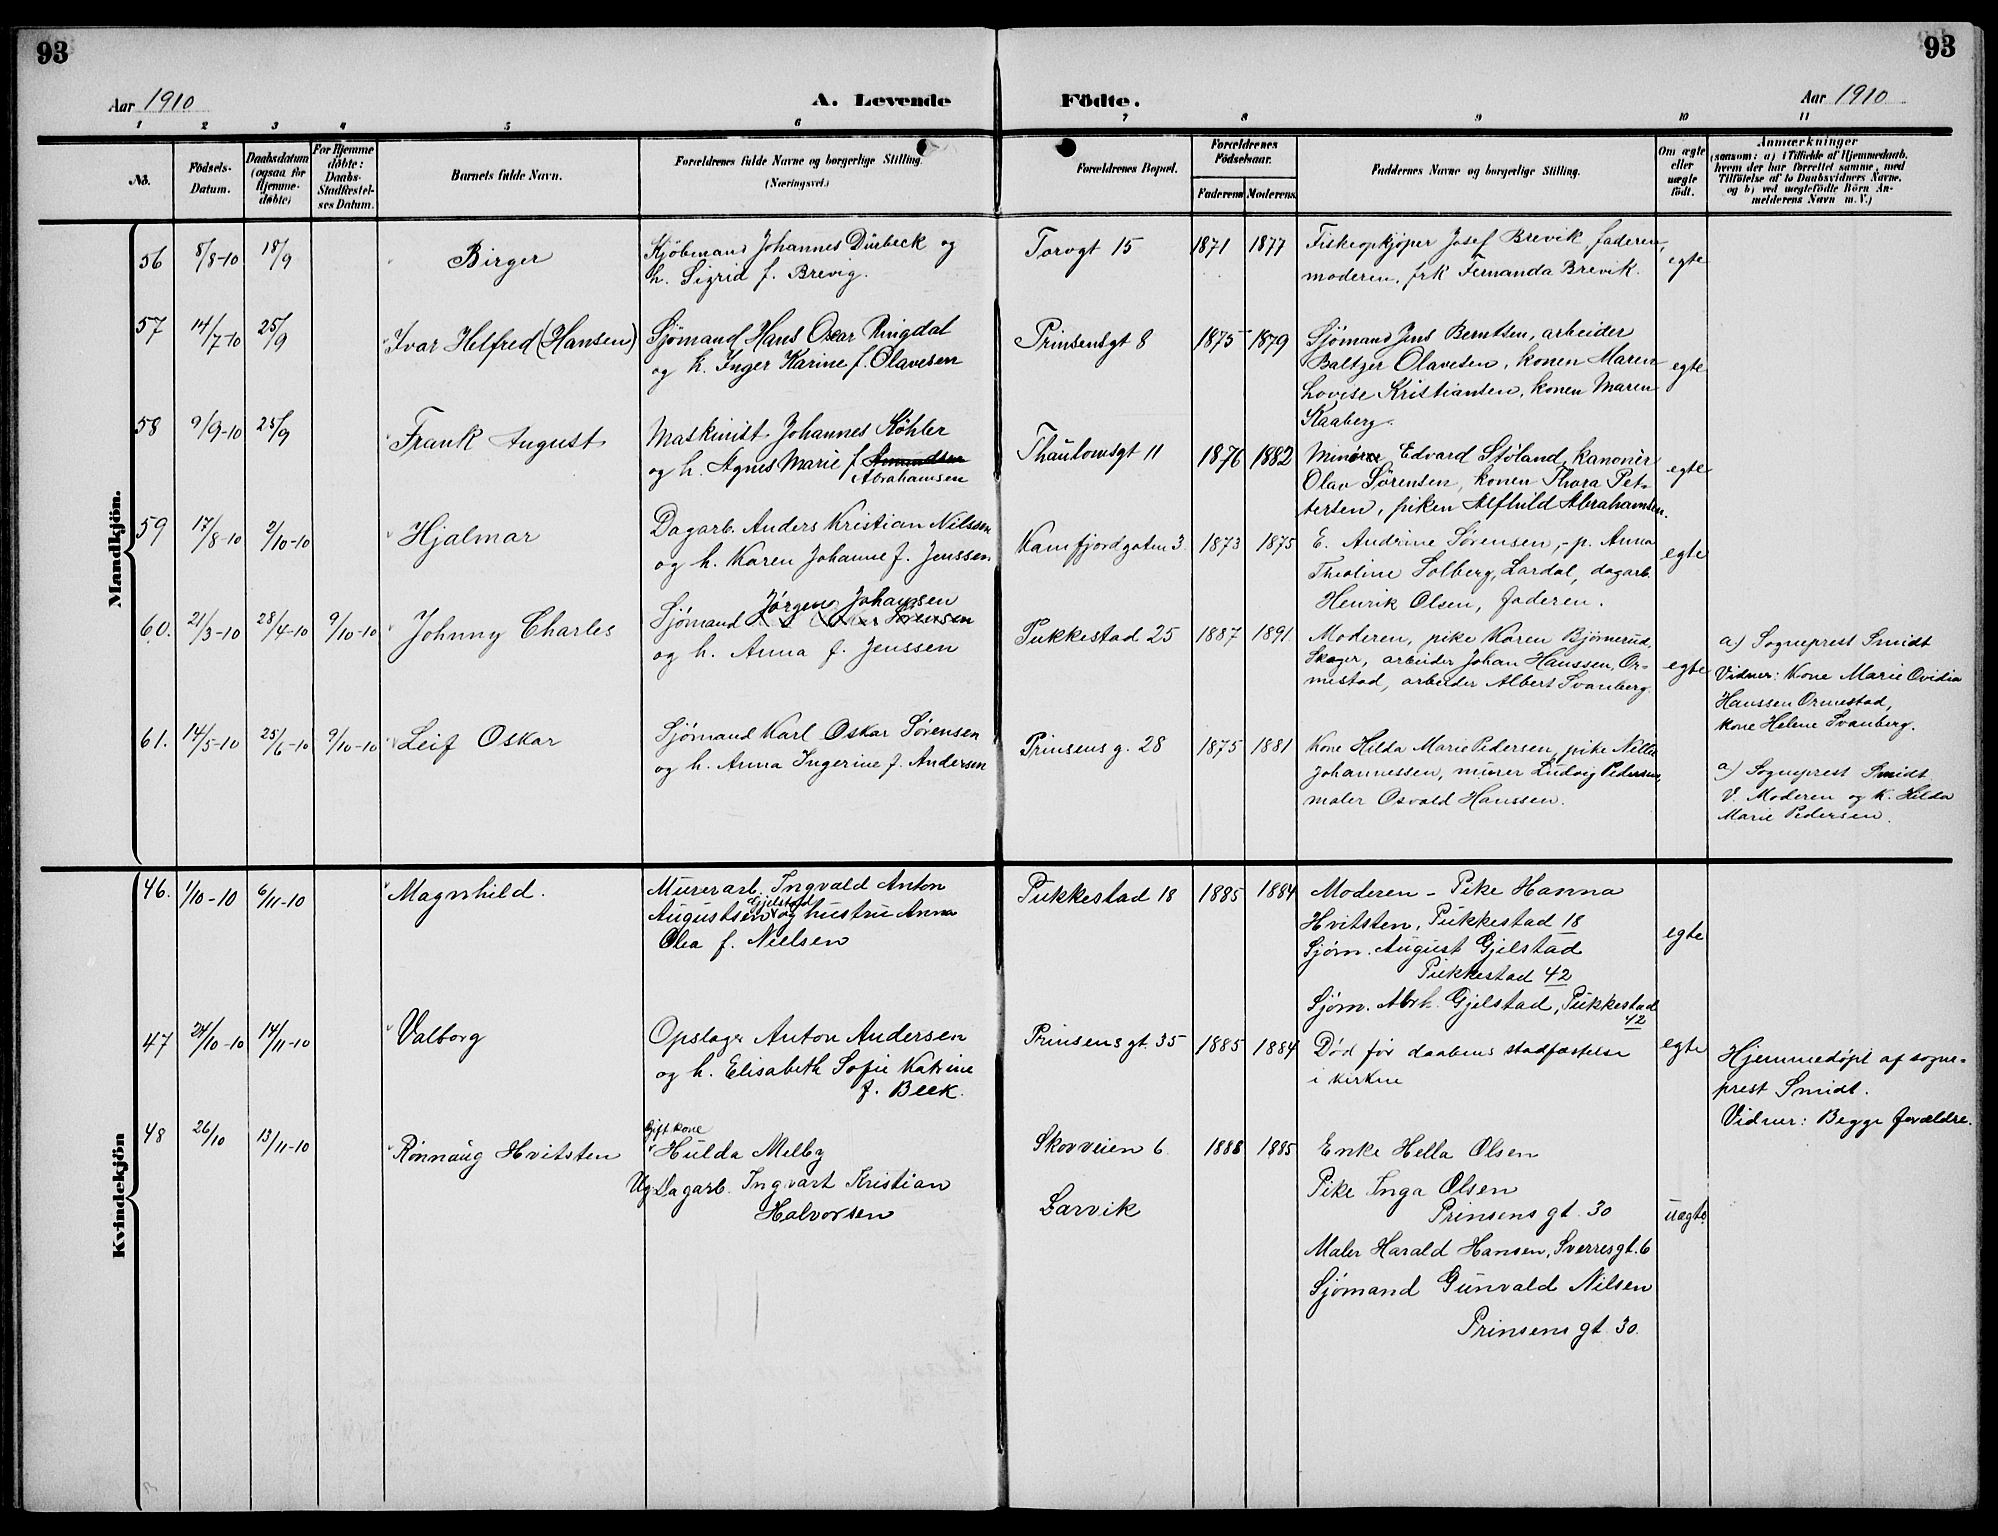 93
93
Aar 1910
A. Levende
Födte.
Aar 1910
1 2 3 4 5 6 7 8 9 10 11
No.
Födsels-
Datum.
Daabsdatum
(ogsaa for
Hjemme-
døbte)
For Hjemme
døbte:
Daabs-
Stadfæstel-
ses Datum.
Barnets fulde Navn.
Forældrenes fulde Navne og borgerlige Stilling.
(Næringsvei.)
Forældrenes Bopæl.
Forældrenes
Födselsaar.
Faderens
Moderens.
Faddernes Navne og borgerlige Stilling.
Om ægte
eller
uægte
født.
Anmærkninger
(saasom: a) i Tilfælde af Hjemmedaab,
hvem der har forrettet samme, med
Tilføielse af to Daabsvidners Navne,
og b) ved uægtefödte Börn An-
melderens Navn m. V.)
Mandkjön.
56 8/8-10 18/9 Birger
Kjöbmand Johannes Dürbeck og
h. Sigrid f. Brevig.
Torvgt 15 1871 1877
Fiskeopkjøper Josef Brevik, faderen,
moderen, frk Fernanda Brevik.
egte
57 14/7-10 25/9 Ivar Helfred (Hansen)
Sjømand Hans Oscar Ringdal
og h. Inger Karine f. Olavesen
Prinsensgt 8 1875 1879
Sjømand Jens Berntsen, arbeider
Baltzer Olavesen, konen Maren
Lovise Kristiansen, konen Maren
Kaaberg.
egte
58 9/9-10 25/9 Frank August
Maskinist Johannes Köhler
og h. Agnes Marie f. Amundsen
Abrahamsen
Thaulowsgt 11 1876 1882
Minører Edvard Støland, kanonér
Olav Sørensen, konen Thora Pet-
tersen, piken Alfhild Abrahamsen.
egte
59 17/8-10 2/10-10 Hjalmar
Dagarb. Anders Kristian Nilssen
og h. Karen Johanne f. Jenssen.
Kamfjordgaten 3 1873 1875
E. Andrine Sørensen, - p. Anna
Theoline Solberg, Lardal, dagarb.
Henrik Olsen, Faderen.
egte
60. 21/3-10 28/4-10 9/10-10 Johnny Charles
Jørgen Johansen
Sjømand
og h. Anna f. Jenssen
Pukkestad 25 1887 1891.
Moderen, pike Karen Bjørnerud,
Skoger, arbeider Johan Hanssen, Or-
mestad, arbeider Albert Svanberg.
egte
a) Sogneprest Smidt
Vidner: Kone Marie Ovidia
Hanssen Ormestad,
kone Helene Svanberg.
61. 14/5-10 25/6-10 9/10-10 Leif Oskar
Sjømand Karl Oskar Sørensen
og h. Anna Ingerine f. Andersen
Prinsens g. 28 1875 1881
Kone Hilda Marie Pedersen, pike Nellie
Johannessen, murer Ludvig Pedersen,
maler Osvald Hanssen.
a) Sogneprest Smidt
V. Moderen og K. Hilda
Marie Pedersen.
Kvindekjön
46. 1/10-10 6/11-10 Magnhild.
Murerarb. Ingvald Anton
Gjelstad
Augustsen og hustru Anna
Olea f. Nielsen
Pukkestad 18 1885 1884
Moderen - Pike Hanna
Hvitsten, Pukkestad 18
Sjøm. August Gjelstad
Pukkestad 42
Sjøm. Abrh. Gjelstad, Pukkestad
42
egte
47 24/10-10 14/11-10 Valborg
Opslager Anton Andersen
og h. Elisabeth Sofie Katrine
f. Beck.
Prinsens gt. 35 1885 1884
Død før daabens stadfæstelse
i kirken
egte
Hjemmedøpt af sogne-
prest Smidt.
Vidner: Begge forældre.
48 26/10 13/11-10 Rønnaug Hvitsten
Gift kone
Hulda Melby
Ug. Dagarb. Ingvart Kristian
Halvorsen
Skovveien 6
Larvik
1888 1885
Enke Hella Olsen
Pike Inga Olsen
Prinsens gt. 30
Maler Harald Hansen, Sverresgt. 6
Sjømand Gunvald Nilsen
Prinsens gt. 30.
uægte